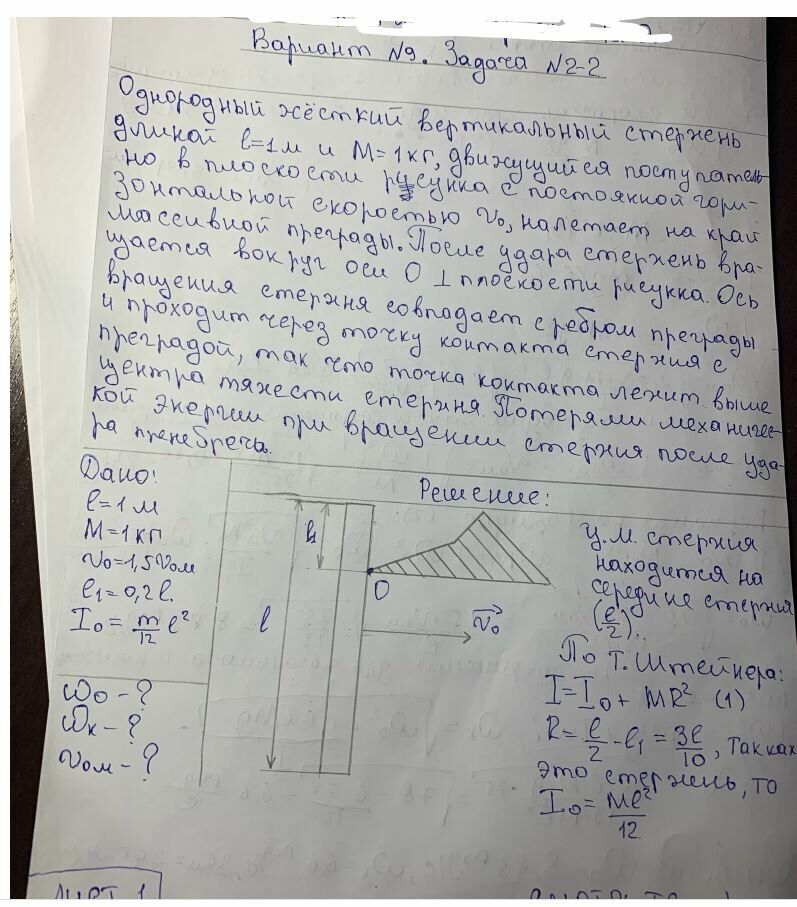 Вариант №9. Задача №2-2
Однородный жёсткий вертикальный стержень
длиной l=1м и М=1кг, движущийся поступатель-
но в плоскости рисунка с постоянной гори-
зонтальной скоростью v₀, налетает на край
массивной преграды. После удара стержень вра-
щается вокруг оси О ⊥ плоскости рисунка. Ось
вращения стержня совпадает с ребром преграды
и проходит через точку контакта стержня с
преградой, так что точка контакта лежит выше
центра тяжести стержня. Потерями механичес-
кой энергии при вращении стержня после уда-
ра пренебречь.
Дано:
l=1м
М=1кг
v₀=1,5v₀м
l₁=0,2l.
I₀=m/12 l²
ω₀-?
ωк-?
v₀м-?
Решение:
l₁
l
О
v₀
Ц.М. стержня
находится на
середине стержня
(l/2).
По т. Штейнера:
I=I₀+MR² (1)
R=l/2-l₁=3l/10, так как
это стержень, то
I₀=Ml²/12
ЛИСТ 1